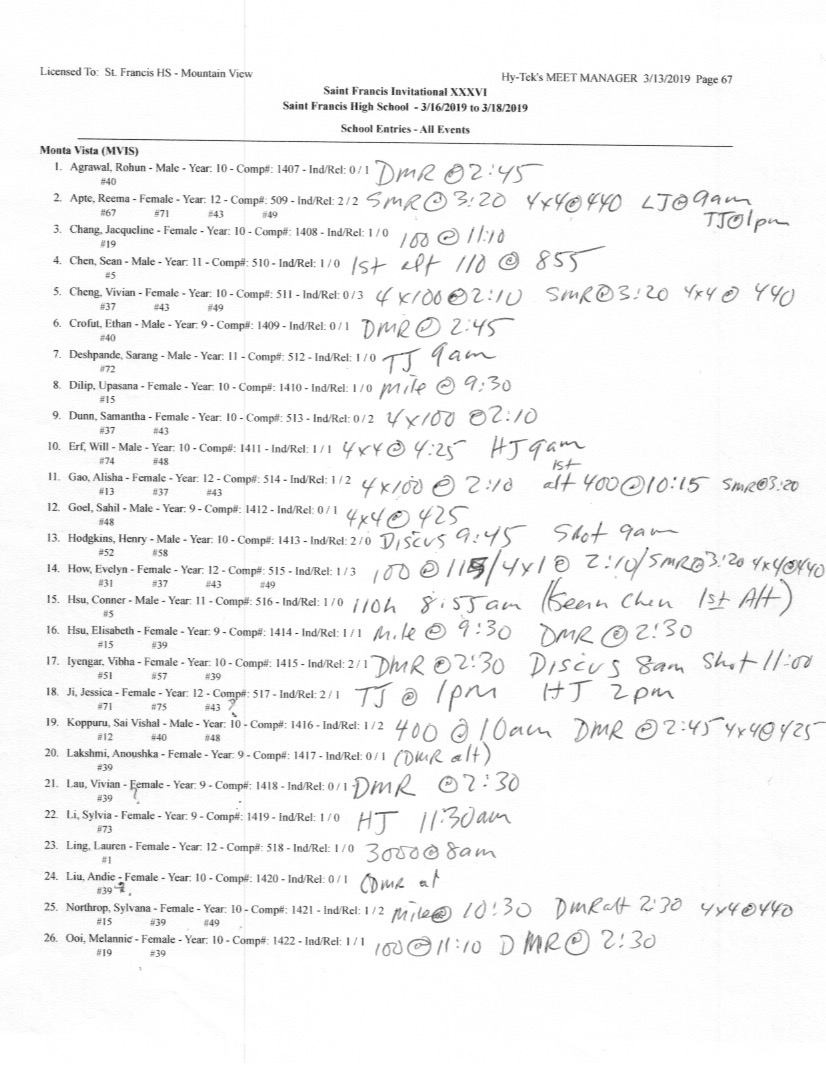 Licensed To: St. Francis HS - Mountain View
Hy-Tek's MEET MANAGER 3/13/2019 Page 67
Saint Francis Invitational XXXVI
Saint Francis High School - 3/16/2019 to 3/18/2019
School Entries - All Events
Monta Vista (MVIS)
1. Agrawal, Rohun - Male - Year: 10 - Comp#: 1407 - Ind/Rel: 0 / 1 DMR @ 2:45
#40
2. Apte, Reema - Female - Year: 12 - Comp#: 509 - Ind/Rel: 2 / 2 SMR @ 3:20 4x4@440 LJ@9am
#67 #71 #43 #49 TJ@1pm
3. Chang, Jacqueline - Female - Year: 10 - Comp#: 1408 - Ind/Rel: 1 / 0 100 @ 11:10
#19
4. Chen, Sean - Male - Year: 11 - Comp#: 510 - Ind/Rel: 1 / 0 1st alt 110 @ 855
#5
5. Cheng, Vivian - Female - Year: 10 - Comp#: 511 - Ind/Rel: 0 / 3 4x100@2:10 SMR@3:20 4x4 @ 440
#37 #43 #49
6. Crofut, Ethan - Male - Year: 9 - Comp#: 1409 - Ind/Rel: 0 / 1 DMR @ 2:45
#40
7. Deshpande, Sarang - Male - Year: 11 - Comp#: 512 - Ind/Rel: 1 / 0 TJ 9am
#72
8. Dilip, Upasana - Female - Year: 10 - Comp#: 1410 - Ind/Rel: 1 / 0 mile @ 9:30
#15
9. Dunn, Samantha - Female - Year: 10 - Comp#: 513 - Ind/Rel: 0 / 2 4x100 @2:10
#37 #43
10. Erf, Will - Male - Year: 10 - Comp#: 1411 - Ind/Rel: 1 / 1 4x4@ 4:25 HJ 9am
#74 #48
11. Gao, Alisha - Female - Year: 12 - Comp#: 514 - Ind/Rel: 1 / 2 4x100 @ 2:10 1st alt 400@10:15 SMR@3:20
#13 #37 #43
12. Goel, Sahil - Male - Year: 9 - Comp#: 1412 - Ind/Rel: 0 / 1 4x4@ 425
#48
13. Hodgkins, Henry - Male - Year: 10 - Comp#: 1413 - Ind/Rel: 2 / 0 Discus 9:45 Shot 9am
#52 #58
14. How, Evelyn - Female - Year: 12 - Comp#: 515 - Ind/Rel: 1 / 3 100 @ 115/4x1@ 2:10/SMR@3:20 4x4@440
#31 #37 #43 #49
15. Hsu, Conner - Male - Year: 11 - Comp#: 516 - Ind/Rel: 1 / 0 110h 8:55am (Sean Chen 1st Alt)
#5
16. Hsu, Elisabeth - Female - Year: 9 - Comp#: 1414 - Ind/Rel: 1 / 1 Mile @ 9:30 DMR @ 2:30
#15 #39
17. Iyengar, Vibha - Female - Year: 10 - Comp#: 1415 - Ind/Rel: 2 / 1 DMR @2:30 Discus 8am Shot 11:00
#51 #57 #39
18. Ji, Jessica - Female - Year: 12 - Comp#: 517 - Ind/Rel: 2 / 1 TJ @ 1pm HJ 2pm
#71 #75 #43 ?
19. Koppuru, Sai Vishal - Male - Year: 10 - Comp#: 1416 - Ind/Rel: 1 / 2 400 @ 10am DMR @ 2:45 4x4@425
#12 #40 #48
20. Lakshmi, Anoushka - Female - Year: 9 - Comp#: 1417 - Ind/Rel: 0 / 1 (DMR alt)
#39
21. Lau, Vivian - Female - Year: 9 - Comp#: 1418 - Ind/Rel: 0 / 1 DMR @2:30
#39
22. Li, Sylvia - Female - Year: 9 - Comp#: 1419 - Ind/Rel: 1 / 0 HJ 11:30am
#73
23. Ling, Lauren - Female - Year: 12 - Comp#: 518 - Ind/Rel: 1 / 0 3000@8am
#1
24. Liu, Andie - Female - Year: 10 - Comp#: 1420 - Ind/Rel: 0 / 1 (DMR al
#39
25. Northrop, Sylvana - Female - Year: 10 - Comp#: 1421 - Ind/Rel: 1 / 2 Mile@ 10:30 DMR alt 2:30 4x4@440
#15 #39 #49
26. Ooi, Melannie - Female - Year: 10 - Comp#: 1422 - Ind/Rel: 1 / 1 100@11:10 DMR@ 2:30
#19 #39